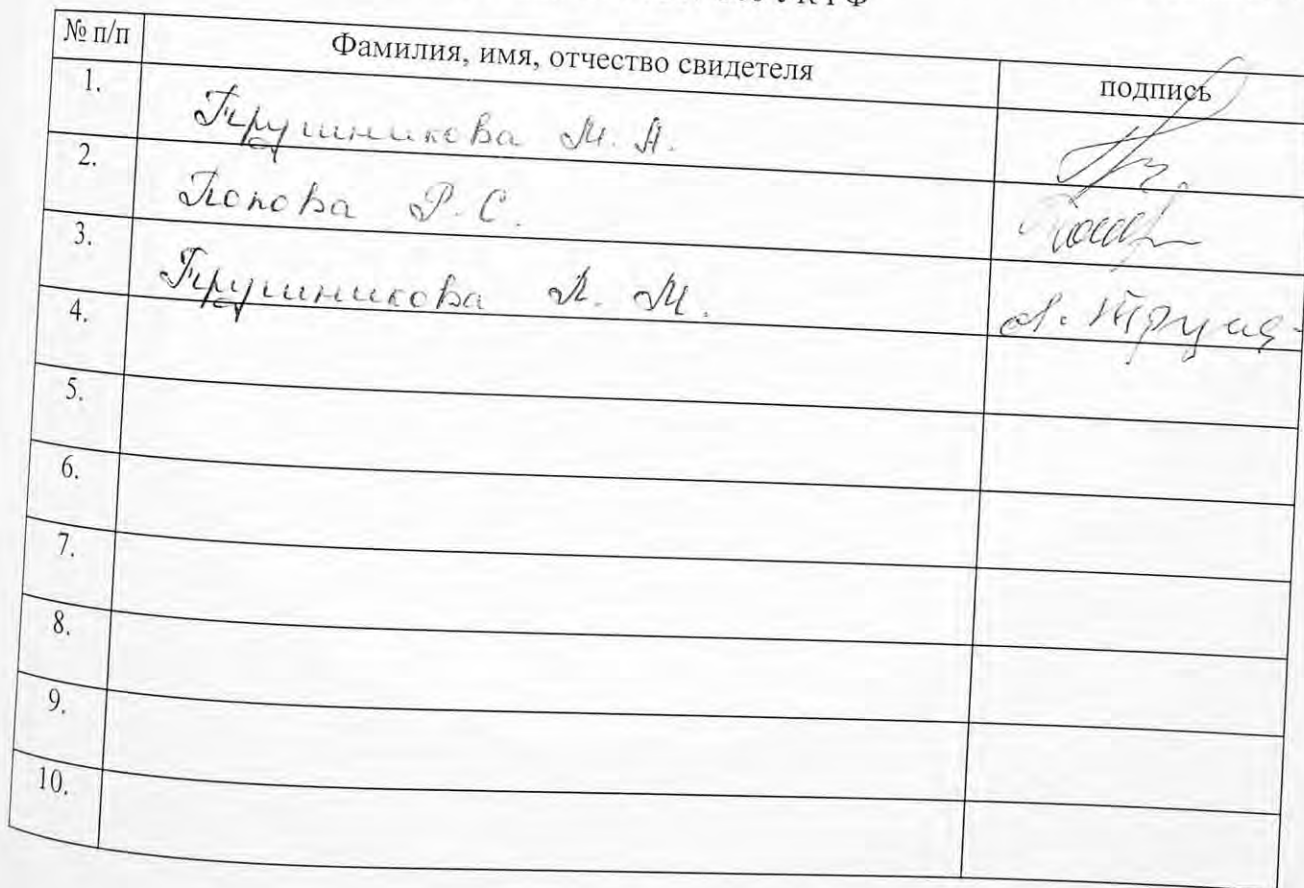 УК РФ
№ п/п Фамилия, имя, отчество свидетеля подпись
1. Трушникова М. А.
2. Попова Р. С.
3. Трушникова А. М. А. Труш
4.
5.
6.
7.
8.
9.
10.